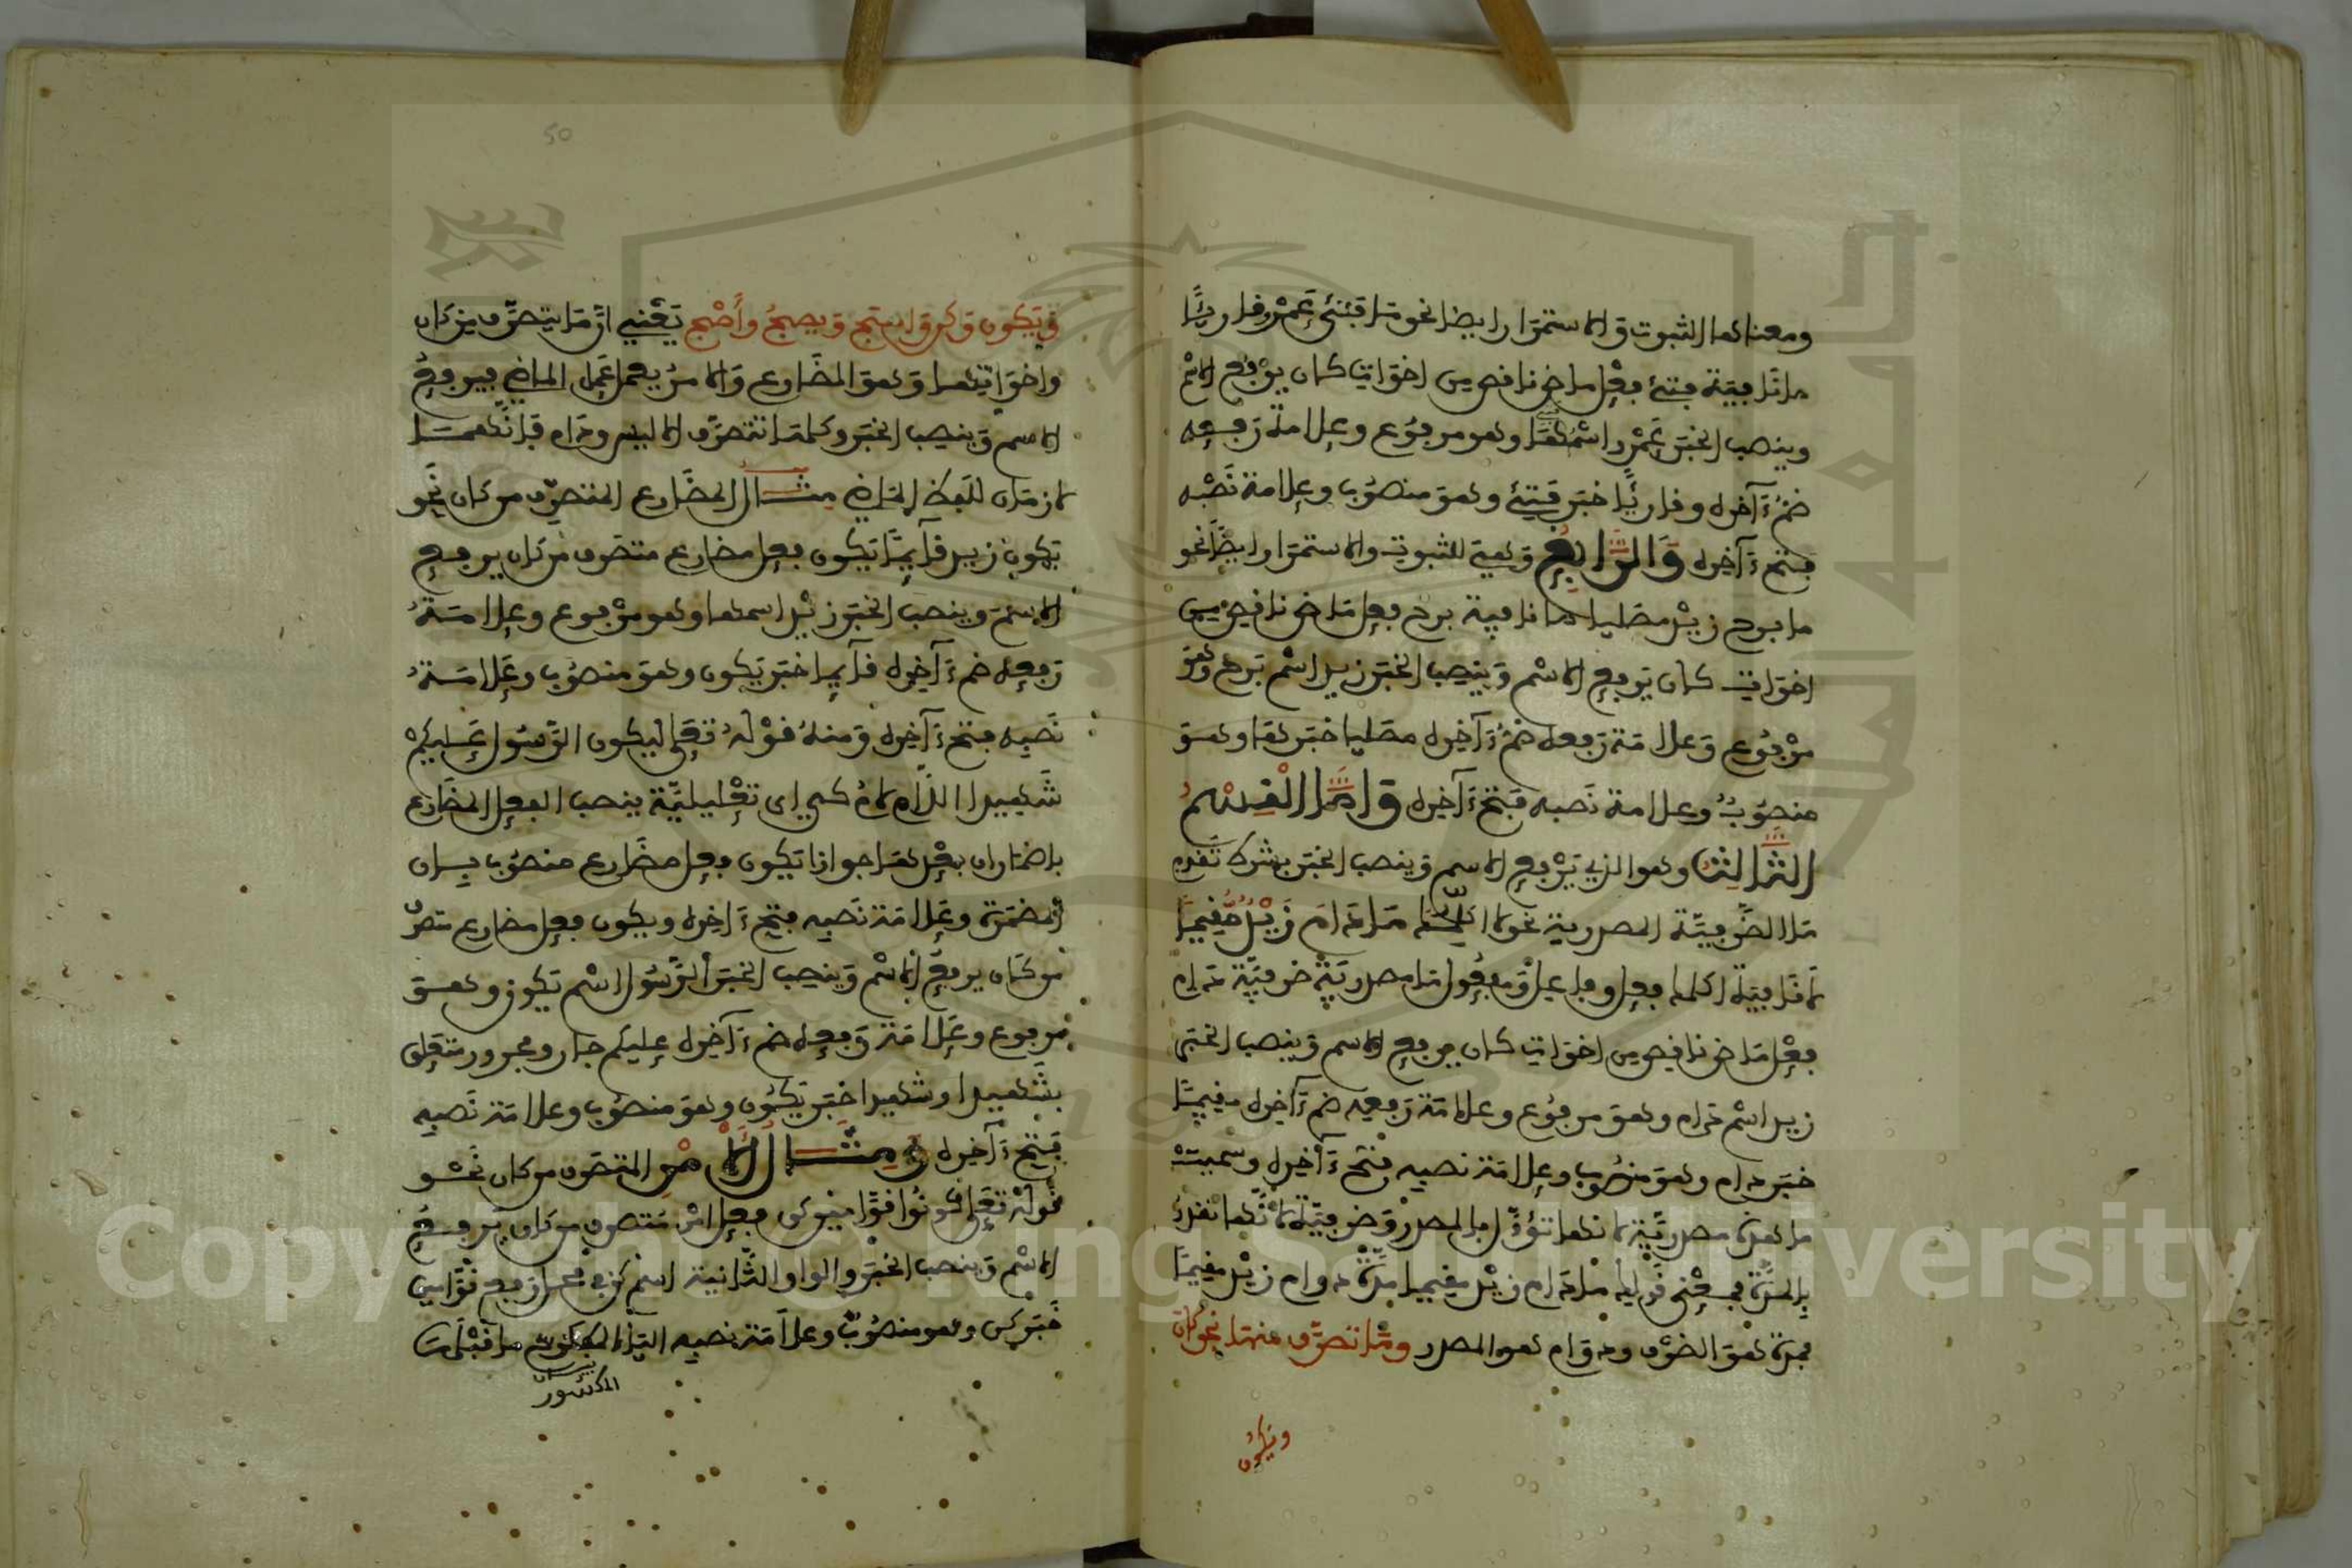 ومعناها الثبوت والاستمرار ايضا نحو ما فتئ عمرو قارئا
ما نافية فتئ فعل ماض ناقص من اخوات كان يرفع الاسم
وينصب الخبر عمرو اسمها وهو مرفوع وعلامة رفعه
ضم ءاخره وقارئا خبر فتئ وهو منصوب وعلامة نصبه
فتح ءاخره والرابع وهي للثبوت والاستمرار ايضا نحو
ما برح زيد مصليا ما نافية برح فعل ماض ناقص من
اخوات كان يرفع الاسم وينصب الخبر زيد اسم برح وهو
مرفوع وعلامة رفعه ضم ءاخره مصليا خبرها وهو
منصوب وعلامة نصبه فتح ءاخره واما القسم
الثالث وهو الذي يرفع الاسم وينصب الخبر بشرط تقدم
ما الظرفية المصدرية نحو لا ما دام زيد مقيما
لا نافية فعل وفاعل ومفعول ما مصدرية ظرفية دام
فعل ماض ناقص من اخوات كان يرفع الاسم وينصب الخبر
زيد اسم دام وهو مرفوع وعلامة رفعه ضم ءاخره مقيما
خبر دام وهو منصوب وعلامة نصبه فتح ءاخره وسميت
ما هذه مصدرية لانها تؤول بالمصدر وظرفية لانها تقدر
بالمدة فمعنى قوله ما دام زيد مقيما مدة دوام زيد مقيما
فمدة هو الظرف ودوام هو المصدر وما تصرف منها نحو كان
ويكون
50
ويكون وكن واصبح ويصبح وأصبح يعني ان ما يتصرف من كان
واخواتها وهو المضارع والامر يعمل عمل الماضي فيرفع
الاسم وينصب الخبر وكلها تتصرف الا ليس ودام فانهما
لازمان للفظ الماضي مثال المضارع المتصرف من كان نحو
يكون زيد قائما يكون فعل مضارع متصرف من كان يرفع
الاسم وينصب الخبر زيد اسمها وهو مرفوع وعلامة
رفعه ضم ءاخره قائما خبر يكون وهو منصوب وعلامة
نصبه فتح ءاخره ومنه قوله تعلى ليكون الرسول عليكم
شهيدا اللام لام كي اي تعليلية ينصب الفعل المضارع
باضمار ان بعدها جوازا يكون فعل مضارع منصوب بان
المضمرة وعلامة نصبه فتح ءاخره ويكون فعل مضارع متصرف
من كان يرفع الاسم وينصب الخبر الرسول اسم يكون وهو
مرفوع وعلامة رفعه ضم ءاخره عليكم جار ومجرور متعلق
بشهيدا وشهيدا خبر يكون وهو منصوب وعلامة نصبه
فتح ءاخره ومثال الامر المتصرف من كان نحو
قوله تعلى كونوا قوامين كن فعل امر متصرف من كان يرفع
الاسم وينصب الخبر والواو الثانية اسم كن في محل رفع قوامين
خبر كن وهو منصوب وعلامة نصبه الياء ما قبلها
المكسور